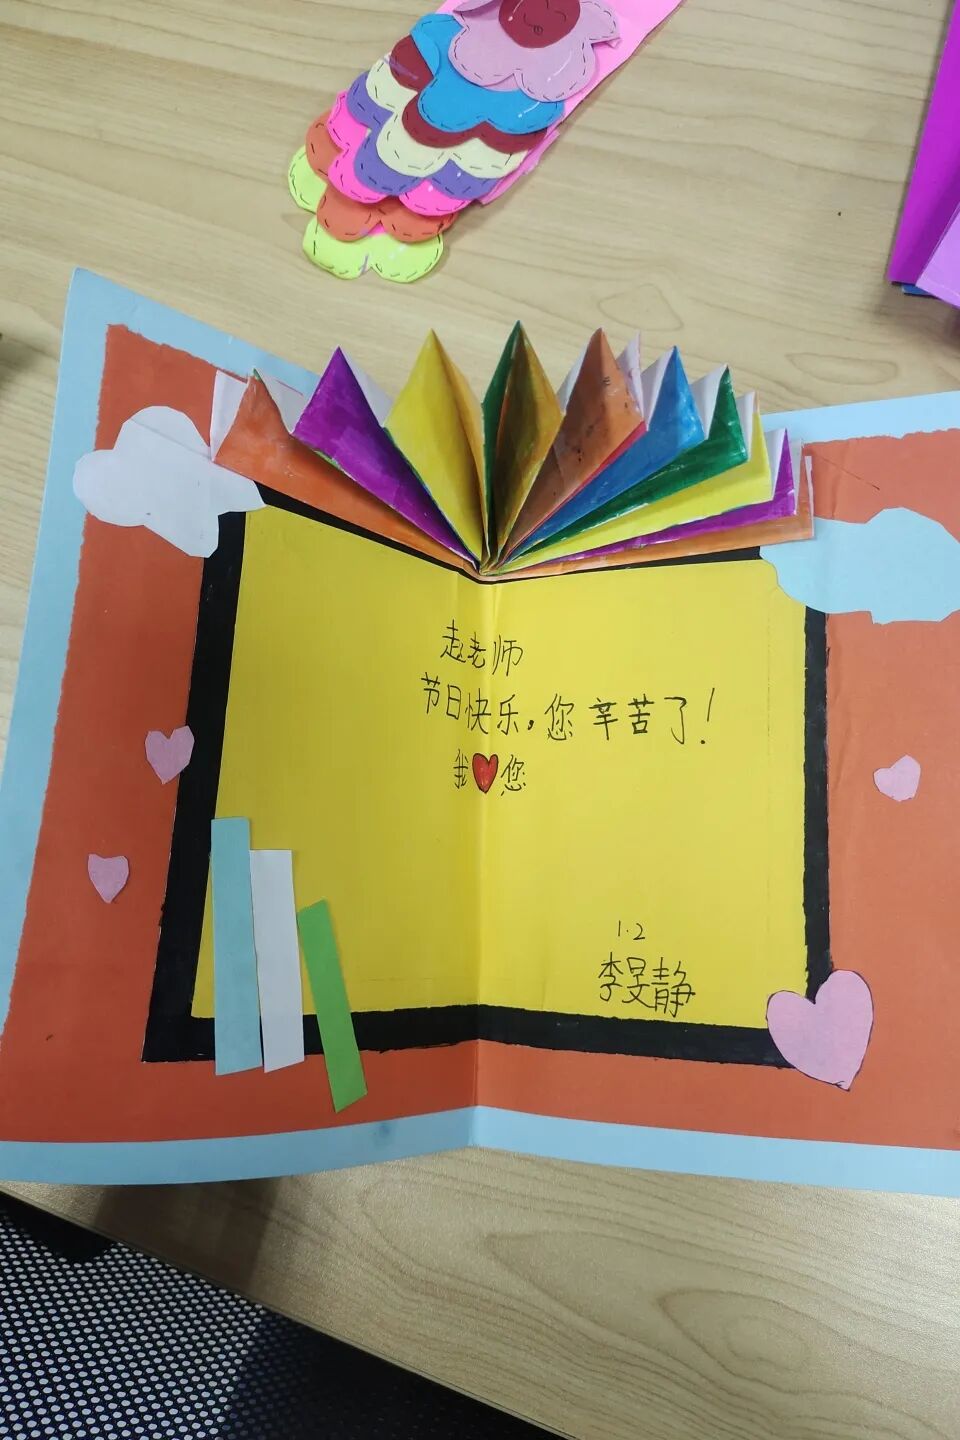 赵老师
节日快乐，您辛苦了！
我❤您
1.2
李旻静